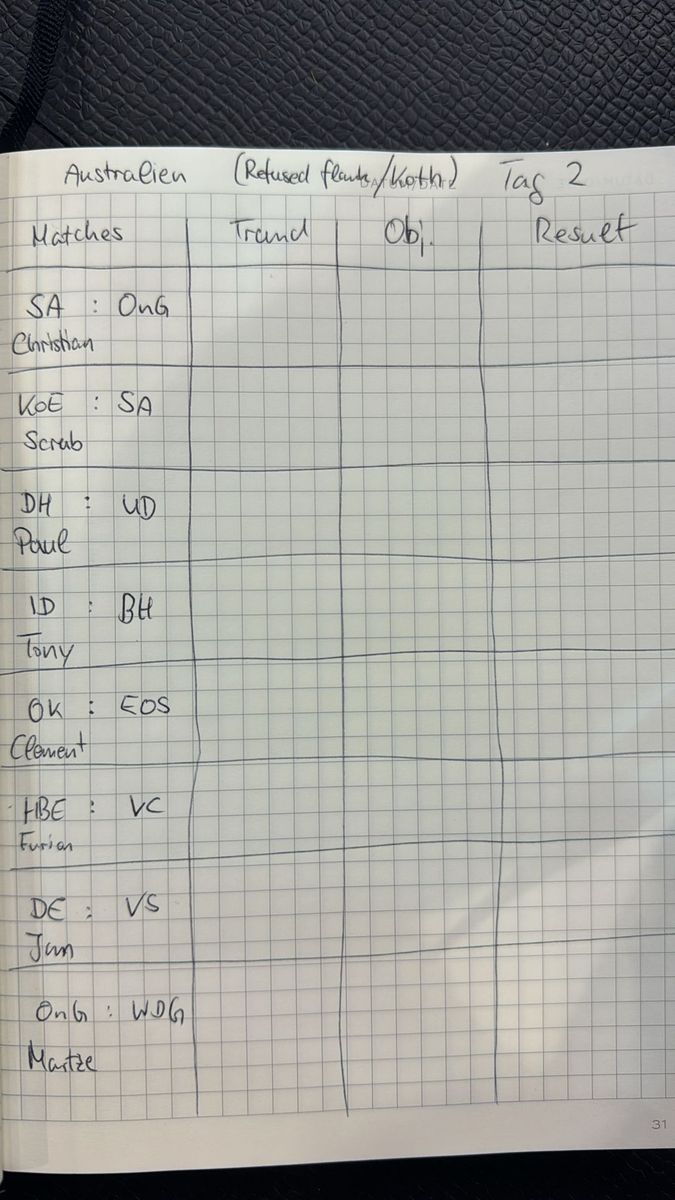 Australien (Refused flank/Koth) Tag 2
Matches Trend Obj. Result
SA : OnG
Christian
KoE : SA
Scrab
DH : UD
Paul
ID : BH
Tony
OK : EOS
Clement
HBE : VC
Furion
DE : VS
Jan
OnG : WDG
Matze
31